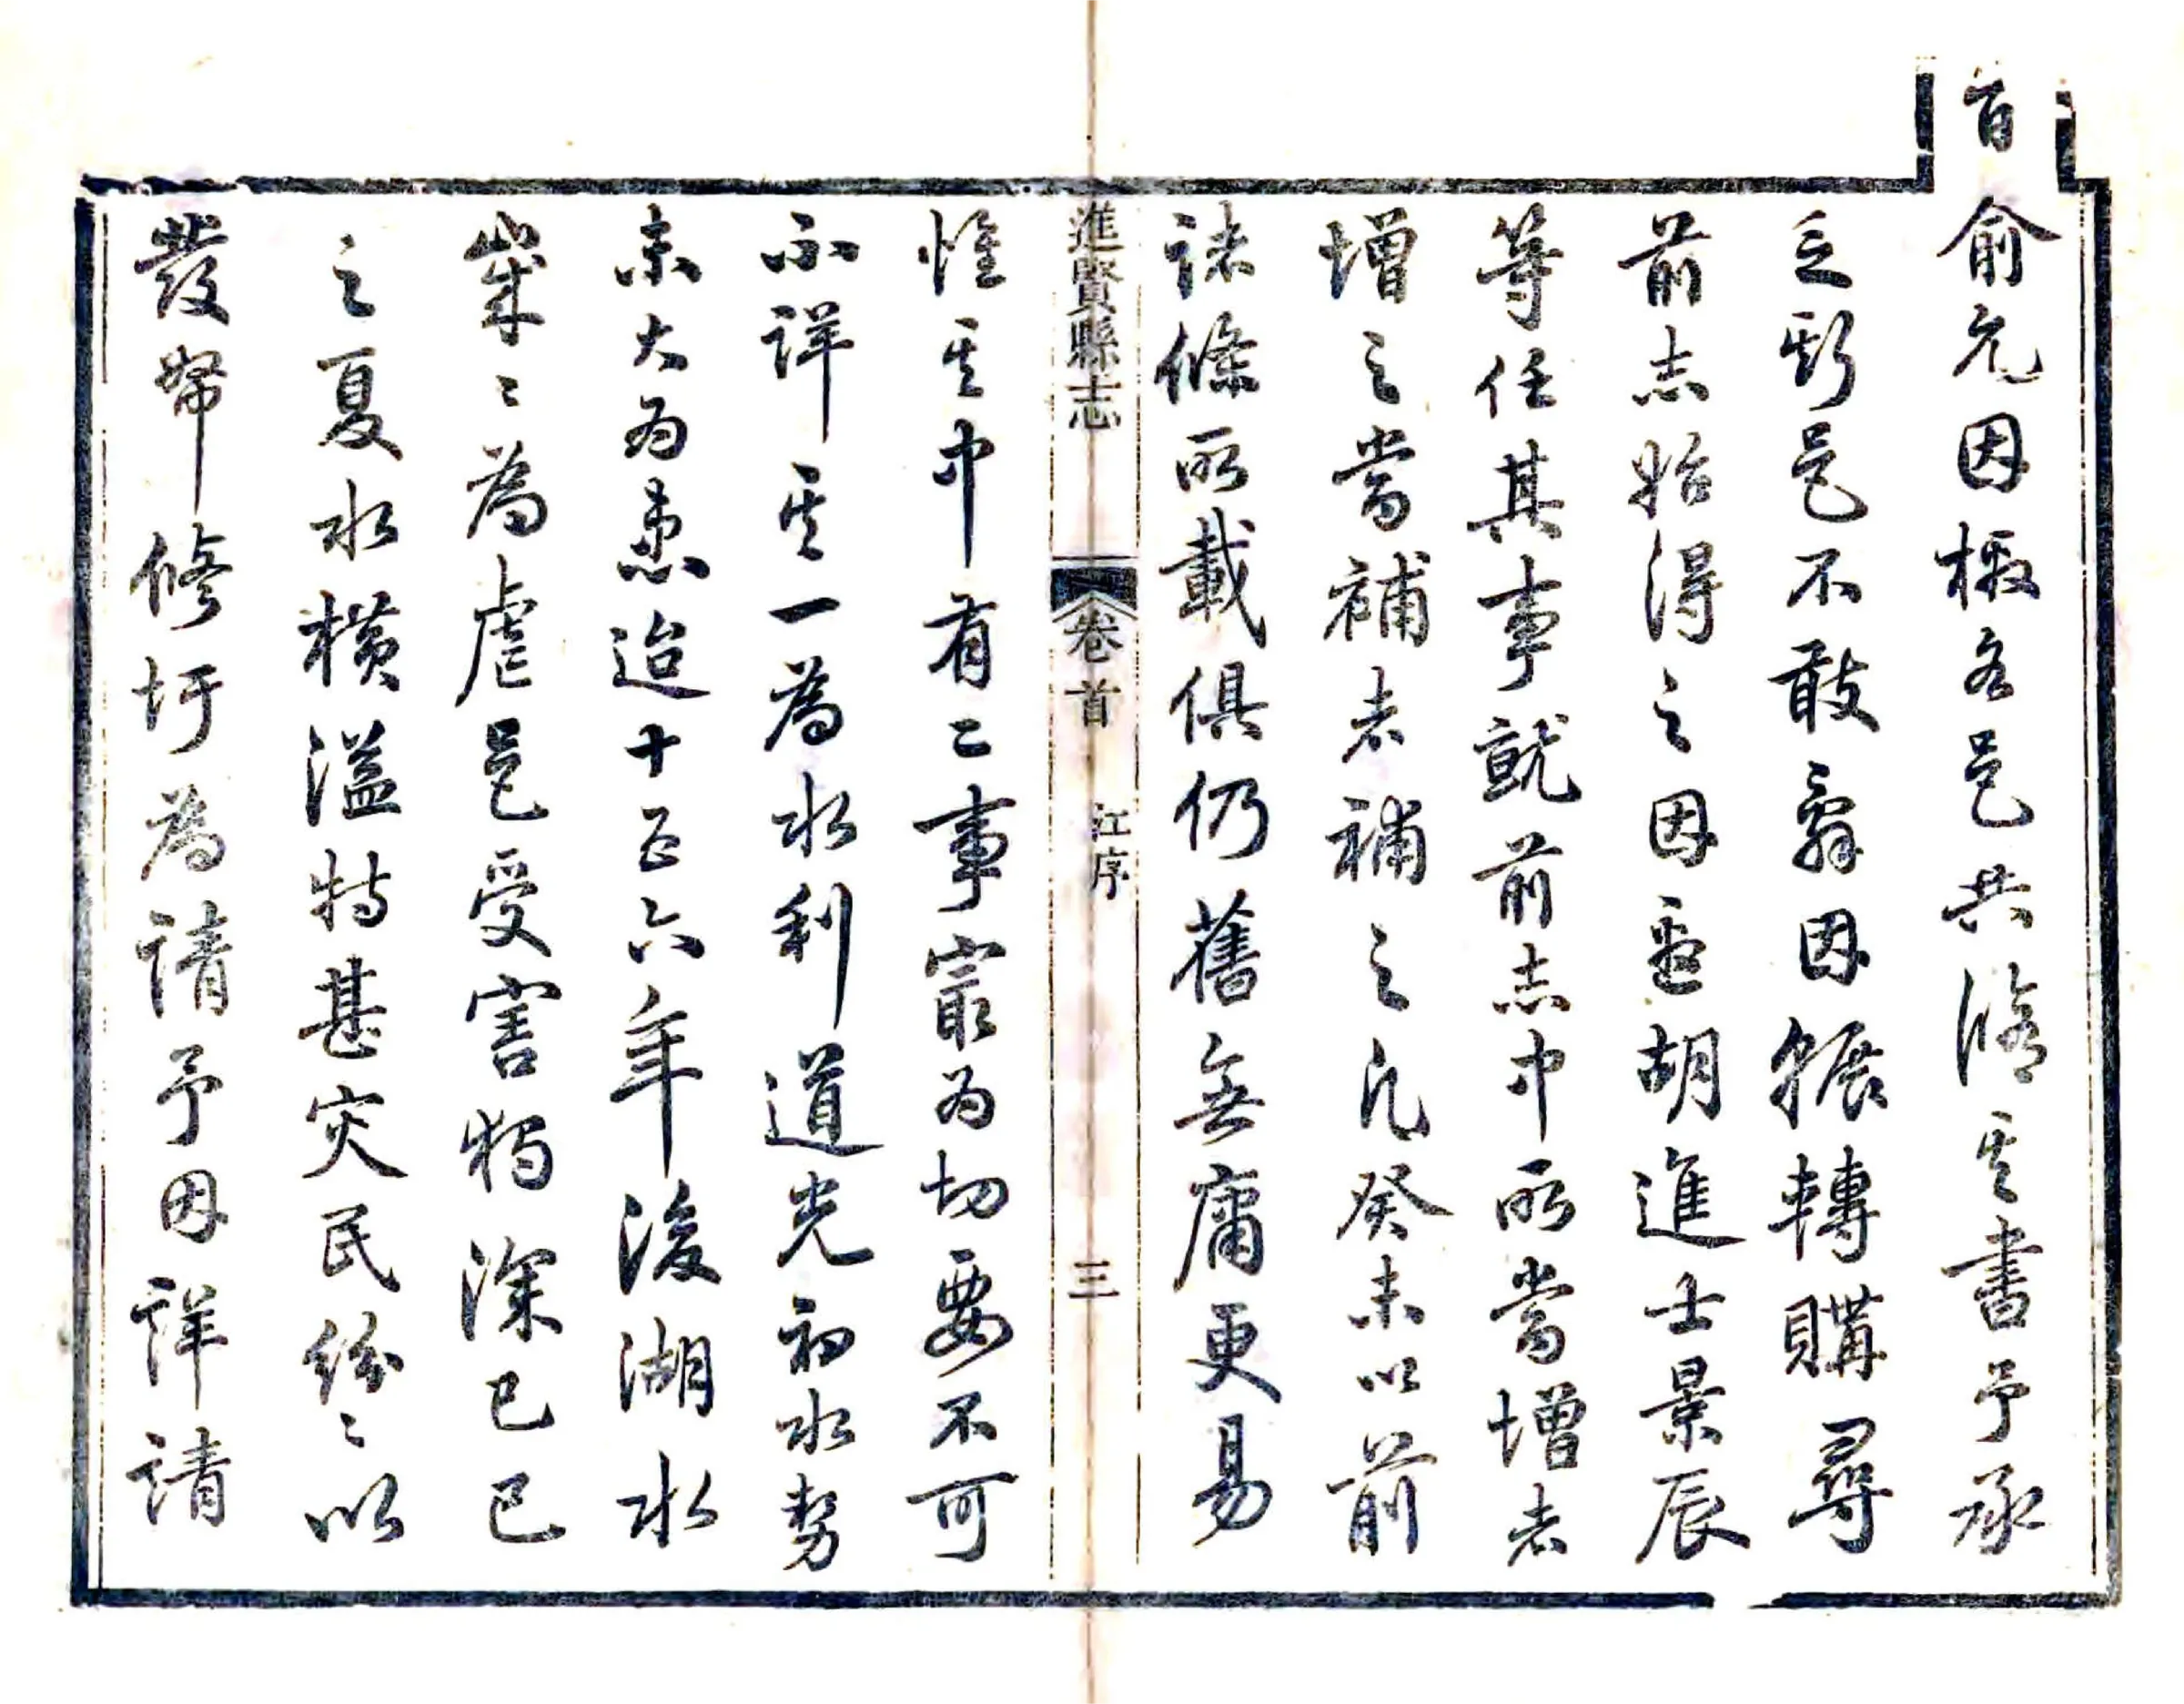 旨俞允因檄各邑共修其書予承
乏斯邑不敢辭因輾轉購尋
前志始得之因亟胡進士景辰
等任其事就前志中所當增者
增之當補者補之凡癸未以前
諸條所載俱仍舊無庸更易
進賢縣志 卷首 江序 三
惟其中有二事最為切要不可
不詳其一為水利道光初水勢
未大為患迨十五六年後湖水
歲〻為虐邑受害獨深己巳
之夏水橫溢特甚災民紛〻以
發帑修圩為請予因詳請